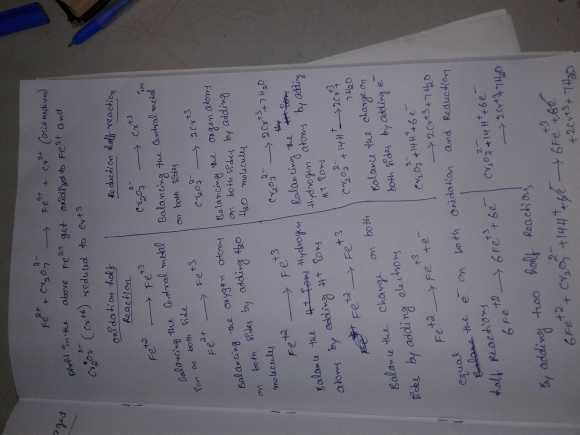 Fe²⁺ + Cr₂O₇²⁻ → Fe³⁺ + Cr³⁺ (acid medium)
in the above Fe²⁺ get oxidized to Fe³⁺ and
Cr₂O₇²⁻ (Cr+6) reduced to Cr+3
oxidation half
Reaction
Fe⁺² → Fe⁺³
Balancing the central metal
ion on both side
Fe²⁺ → Fe⁺³
Balancing the oxygen atoms
on both sides by adding H₂O
molecules
Fe⁺² → Fe⁺³
Balance the Hydrogen
atoms by adding H⁺ ions
Fe⁺² → Fe⁺³
Balance the change on both
sides by adding electrons
Fe⁺² → Fe⁺³ + e⁻
Reduction half reaction
Cr₂O₇²⁻ → Cr⁺³
Balancing the central metal ion
on both sides
Cr₂O₇²⁻ → 2Cr⁺³
Balancing the oxygen atoms
on both sides by adding
H₂O molecules
Cr₂O₇²⁻ → 2Cr⁺³ + 7H₂O
Balancing the
Hydrogen atoms by adding
H⁺ ions
Cr₂O₇²⁻ + 14H⁺ → 2Cr⁺³ + 7H₂O
Balance the change on
both sides by adding e⁻
Cr₂O₇²⁻ + 14H⁺ + 6e⁻
→ 2Cr⁺³ + 7H₂O
equal the e⁻ on both oxidation and Reduction
half reactions
6Fe⁺² → 6Fe⁺³ + 6e⁻
Cr₂O₇²⁻ + 14H⁺ + 6e⁻
→ 2Cr⁺³ + 7H₂O
By adding two half Reactions
6Fe⁺² + Cr₂O₇²⁻ + 14H⁺ + 6e⁻ → 6Fe⁺³ + 6e⁻
+ 2Cr⁺³ + 7H₂O